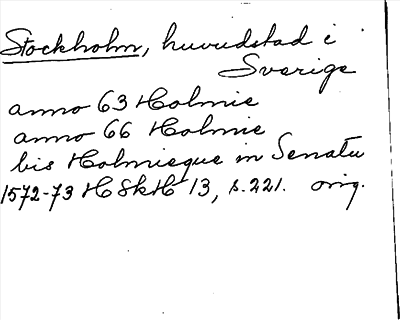 Stockholm, huvudstad i
Sverige
anno 63 Holmie
anno 66 Holmie
bis Holmieque in Senatu
1572-73 HSkH 13, s. 221. orig.